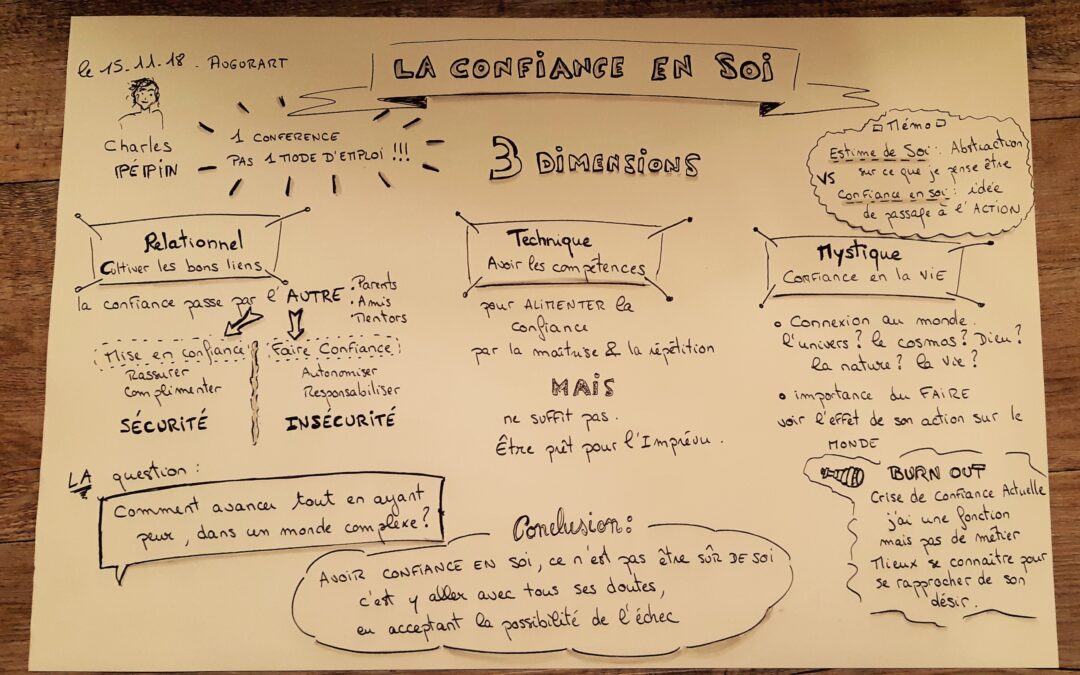 le 15.11.18. AUGURART
LA CONFIANCE EN SOI
Charles
PÉPIN
1 CONFERENCE
PAS 1 MODE D'EMPLOI !!!
3 DIMENSIONS
Mémo
Estime de Soi : Abstraction
sur ce que je pense être
VS
Confiance en soi : idée
de passage à l'ACTION
Relationnel
Cultiver les bons liens
la confiance passe par l'AUTRE
. Parents
. Amis
. Mentors
Mise en confiance
Rassurer
Complimenter
SÉCURITÉ
Faire Confiance
Autonomiser
Responsabiliser
INSÉCURITÉ
Technique
Avoir les compétences
pour ALIMENTER la
confiance
par la maîtrise & la répétition
MAIS
ne suffit pas.
Être prêt pour l'Imprévu.
Mystique
CONFIANCE EN LA VIE
Connexion au monde.
l'univers ? le cosmos ? Dieu ?
la nature ? la vie ?
importance du FAIRE
voir l'effet de son action sur le
MONDE
BURN OUT
Crise de confiance Actuelle
j'ai une fonction
mais pas de métier
Mieux se connaître pour
se rapprocher de son
désir.
LA question :
Comment avancer tout en ayant
peur, dans un monde complexe ?
Conclusion :
AVOIR CONFIANCE EN SOI, ce n'est pas être SÛR DE SOI
c'est y aller avec tous ses doutes,
en acceptant la possibilité de l'échec